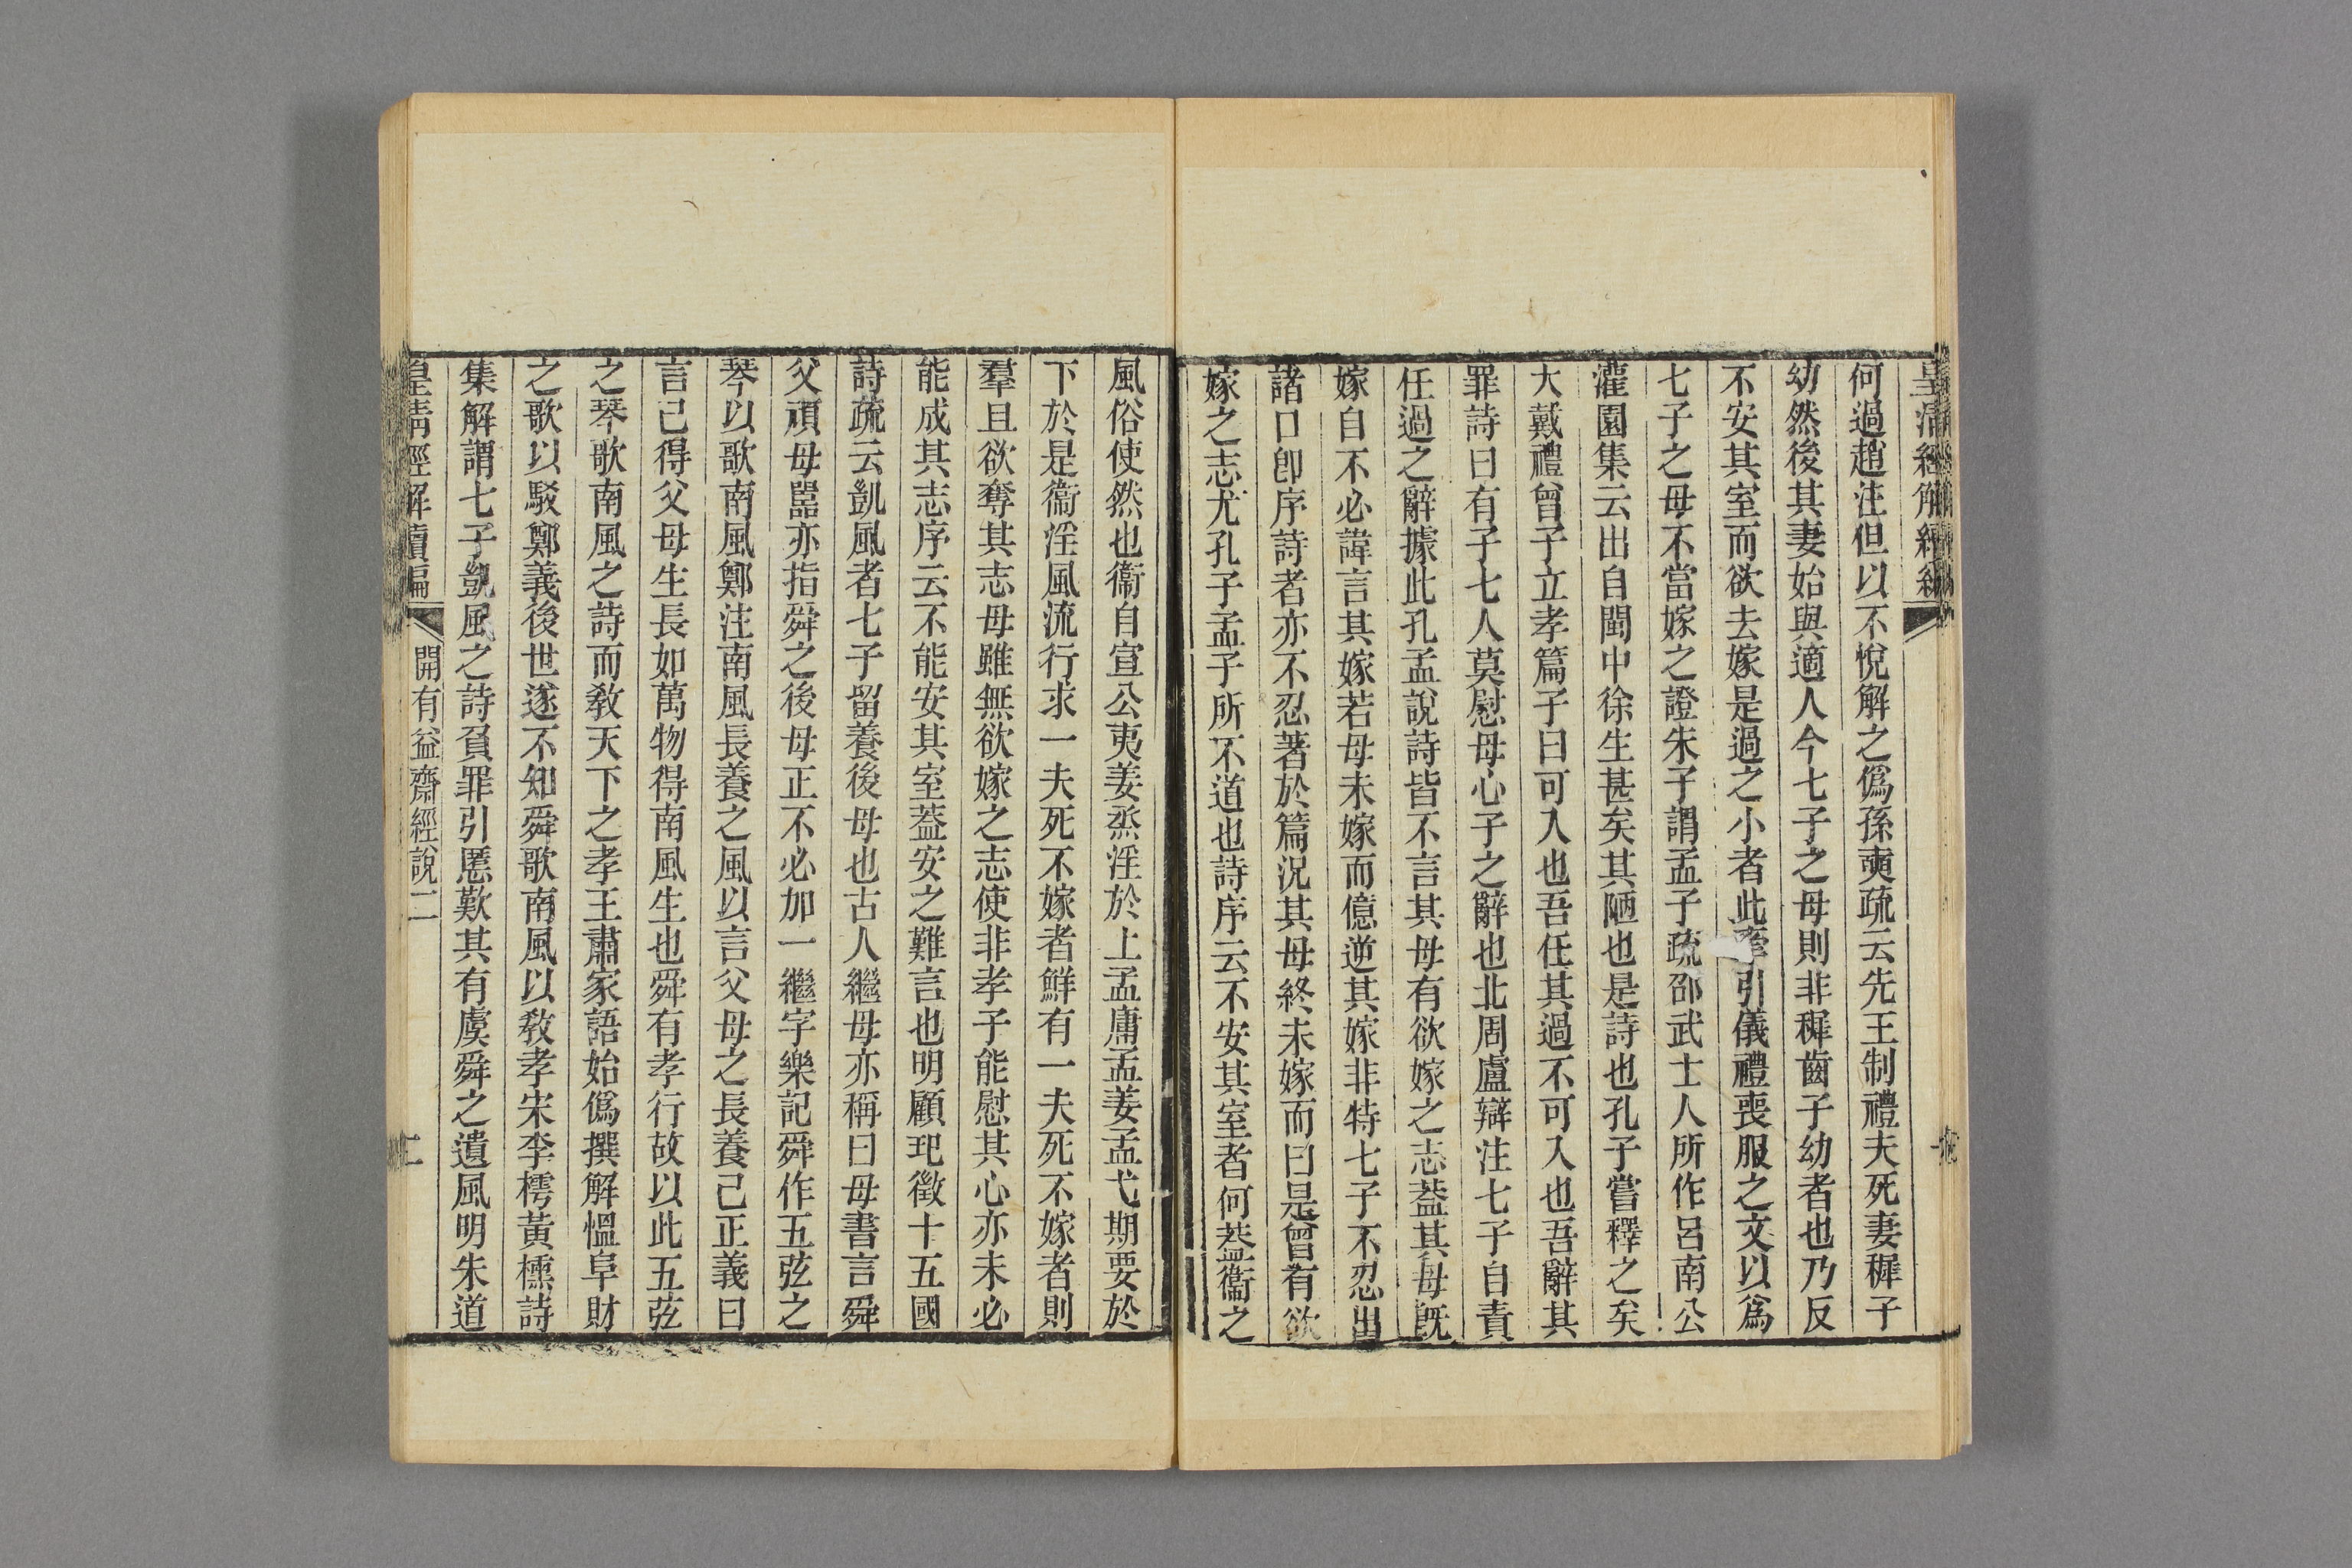 何過趙注但以不悅解之僞孫奭疏云先王制禮夫死妻穉子
幼然後其妻始與適人今七子之母則非穉齒子幼者也乃反
不安其室而欲去嫁是過之小者此牽引儀禮喪服之文以爲
七子之母不當嫁之證朱子謂孟子疏邵武士人所作呂南公
灌園集云出自閩中徐生甚矣其陋也是詩也孔子嘗釋之矣
大戴禮曾子立孝篇子曰可入也吾任其過不可入也吾辭其
罪詩曰有子七人莫慰母心子之辭也北周盧辯注七子自責
任過之辭據此孔孟說詩皆不言其母有欲嫁之志葢其母旣
嫁自不必諱言其嫁若母未嫁而億逆其嫁非特七子不忍出
諸口卽序詩者亦不忍著於篇況其母終未嫁而曰是曾有欲
嫁之志尤孔子孟子所不道也詩序云不安其室者何葢衞之
風俗使然也衞自宣公夷姜烝淫於上孟庸孟姜孟弋期要於
下於是衞淫風流行求一夫死不嫁者鮮有一夫死不嫁者則
羣且欲奪其志母雖無欲嫁之志使非孝子能慰其心亦未必
能成其志序云不能安其室葢安之難言也明顧玘徵十五國
詩疏云凱風者七子留養後母也古人繼母亦稱曰母書言舜
父頑母嚚亦指舜之後母正不必加一繼字樂記舜作五弦之
琴以歌南風鄭注南風長養之風以言父母之長養己正義曰
言己得父母生長如萬物得南風生也舜有孝行故以此五弦
之琴歌南風之詩而敎天下之孝王肅家語始僞撰解慍阜財
之歌以駁鄭義後世遂不知舜歌南風以敎孝宋李樗黃櫄詩
集解謂七子凱風之詩負罪引慝歎其有虞舜之遺風明朱道
皇淸經解續編
開有益齋經說二
二